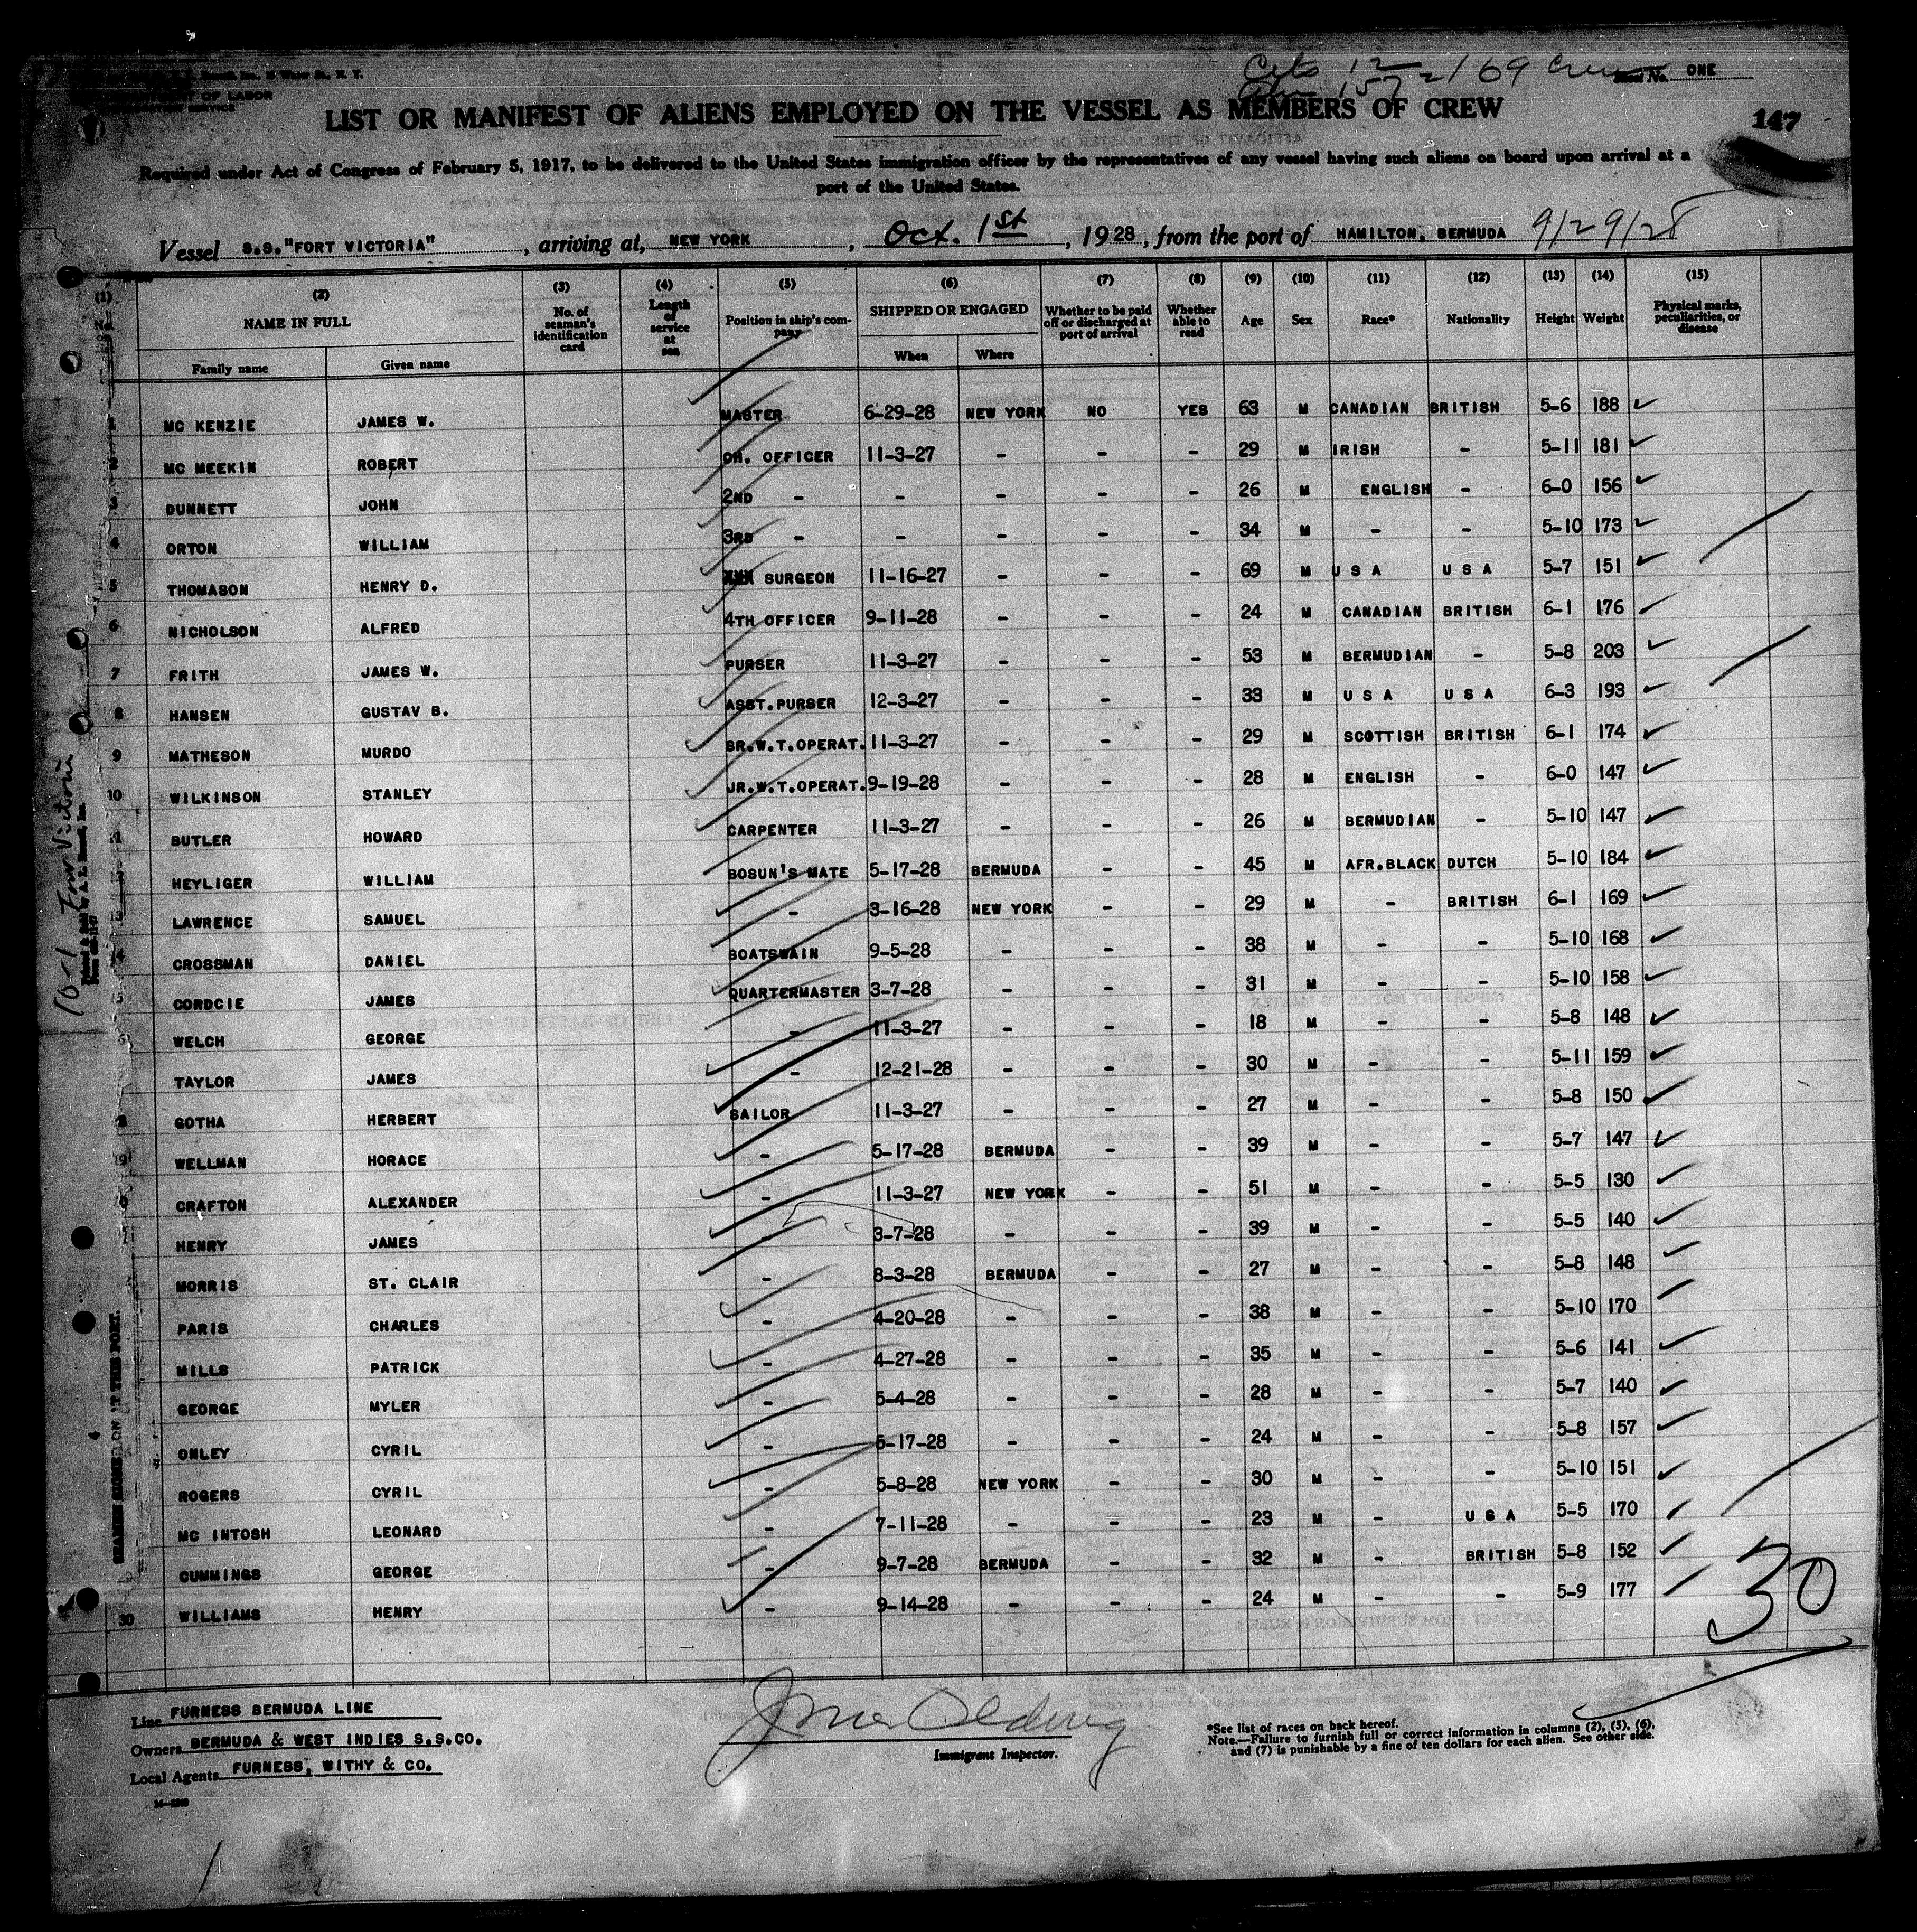 OF LABOR
Cits 12
Aln 157 = 169 Crew
Sheet No. ONE
LIST OR MANIFEST OF ALIENS EMPLOYED ON THE VESSEL AS MEMBERS OF CREW
147
Required under Act of Congress of February 5, 1917, to be delivered to the United States immigration officer by the representatives of any vessel having such aliens on board upon arrival at a
port of the United States.
Vessel S.S."FORT VICTORIA", arriving at, NEW YORK, Oct. 1st, 1928, from the port of HAMILTON, BERMUDA 9/29/28
(1) (2) (3) (4) (5) (6) (7) (8) (9) (10) (11) (12) (13) (14) (15)
No. NAME IN FULL No. of seaman's identification card Length of service at sea Position in ship's company SHIPPED OR ENGAGED Whether to be paid off or discharged at port of arrival Whether able to read Age Sex Race* Nationality Height Weight Physical marks, peculiarities, or disease
Family name Given name When Where
MC KENZIE JAMES W. MASTER 6-29-28 NEW YORK NO YES 63 M CANADIAN BRITISH 5-6 188
MC MEEKIN ROBERT CH. OFFICER 11-3-27 - - - 29 M IRISH - 5-11 181
DUNNETT JOHN 2ND - - - - - 26 M ENGLISH - 6-0 156
4 ORTON WILLIAM 3RD - - - - - 34 M - - 5-10 173
5 THOMASON HENRY D. XXX SURGEON 11-16-27 - - - 69 M U S A U S A 5-7 151
6 NICHOLSON ALFRED 4TH OFFICER 9-11-28 - - - 24 M CANADIAN BRITISH 6-1 176
7 FRITH JAMES W. PURSER 11-3-27 - - - 53 M BERMUDIAN - 5-8 203
8 HANSEN GUSTAV B. ASST.PURSER 12-3-27 - - - 33 M U S A U S A 6-3 193
9 MATHESON MURDO SR.W.T.OPERAT. 11-3-27 - - - 29 M SCOTTISH BRITISH 6-1 174
10 WILKINSON STANLEY JR.W.T.OPERAT. 9-19-28 - - - 28 M ENGLISH - 6-0 147
BUTLER HOWARD CARPENTER 11-3-27 - - - 26 M BERMUDIAN - 5-10 147
HEYLIGER WILLIAM BOSUN'S MATE 5-17-28 BERMUDA - - 45 M AFR.BLACK DUTCH 5-10 184
LAWRENCE SAMUEL - 3-16-28 NEW YORK - - 29 M - BRITISH 6-1 169
CROSSMAN DANIEL BOATSWAIN 9-5-28 - - - 38 M - - 5-10 168
CORDCIE JAMES QUARTERMASTER 3-7-28 - - - 31 M - - 5-10 158
WELCH GEORGE - 11-3-27 - - - 18 M - - 5-8 148
TAYLOR JAMES - 12-21-28 - - - 30 M - - 5-11 159
GOTHA HERBERT SAILOR 11-3-27 - - - 27 M - - 5-8 150
WELLMAN HORACE - 5-17-28 BERMUDA - - 39 M - - 5-7 147
CRAFTON ALEXANDER - 11-3-27 NEW YORK - - 51 M - - 5-5 130
HENRY JAMES - 3-7-28 - - - 39 M - - 5-5 140
MORRIS ST. CLAIR - 8-3-28 BERMUDA - - 27 M - - 5-8 148
PARIS CHARLES - 4-20-28 - - - 38 M - - 5-10 170
MILLS PATRICK - 4-27-28 - - - 35 M - - 5-6 141
GEORGE MYLER - 5-4-28 - - - 28 M - - 5-7 140
ONLEY CYRIL - 5-17-28 - - - 24 M - - 5-8 157
ROGERS CYRIL - 5-8-28 NEW YORK - - 30 M - - 5-10 151
MC INTOSH LEONARD - 7-11-28 - - - 23 M - U S A 5-5 170
CUMMINGS GEORGE - 9-7-28 BERMUDA - - 32 M - BRITISH 5-8 152
30 WILLIAMS HENRY - 9-14-28 - - - 24 M - - 5-9 177
30
10-1 Fort Victoria
Line FURNESS BERMUDA LINE
Owners BERMUDA & WEST INDIES S.S.CO.
Local Agents FURNESS, WITHY & CO.
Immigrant Inspector.
*See list of races on back hereof.
Note.—Failure to furnish full or correct information in columns (2), (5), (6),
and (7) is punishable by a fine of ten dollars for each alien. See other side.